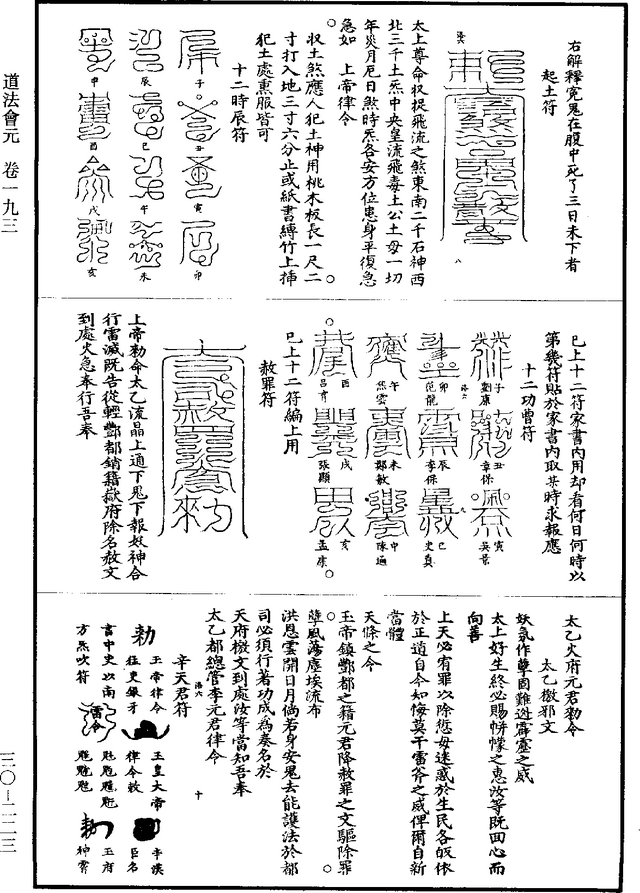 道法會元 卷一九三
三〇—二二三
右解釋冤鬼在腹中死了三日未下者
起土符
太上尊命收捉飛流之煞東南二千石神西
北三千土炁中央皇流飛毒土公土母一切
年災月厄日煞時炁各安方位患身平復急
急如 上帝律令
收土煞應人犯土神用桃木板長一尺二
寸打入地三寸六分止或紙書縛竹上插
犯土處熏服皆可
十二時辰符
子
丑
寅
卯
辰
巳
午
未
申
酉
戌
亥
已上十二符家書內用却看何日何時以
第幾符貼於家書內取某時求報應
十二功曹符
子 劉康
丑 章保
寅 吳景
卯 范龍
辰 李保
巳 史真
午
未 鄭敏
申 陳通
酉 呂育
戌 張顯
亥 孟康
已上十二符編上用
赦罪符
上帝勅命太乙流晶上通下鬼下報妖神合
行雷滅既告從輕酆都銷籍嶽府除名赦文
到處火急奉行吾奉
太乙火府元君勅令
太乙檄邪文
妖氛作孽固難逃霹靂之威
太上好生終必賜帡幪之惠汝等既回心而
向善
上天必宥罪以除愆毋迷惑於生民各皈依
於正道自今如悔莫干雷斧之威俾爾自新
當體
天條之令
玉帝鎮酆都之籍元君降赦罪之文驅除罪
孽風蕩塵埃流布
洪恩雲開日月倘若身安鬼去能護法於都
司必須行著功成為奏名於
天府檄文到處汝等當知吾奉
太乙都總管李元君律令
辛天君符
玉皇大帝
玉帝律令
律令敕
臣名
玉府
神霄